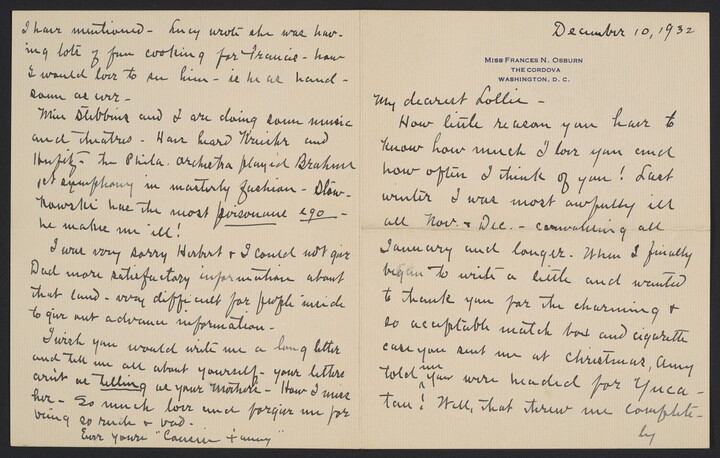 December 10, 1932
MISS FRANCES N. OSBURN
THE CORDOVA
WASHINGTON, D. C.
My dearest Lollie -
How little reason you have to
know how much I love you and
how often I think of you! Last
winter I was most awfully ill
all Nov. & Dec. - convalescing all
January and longer. When I finally
began to write a little and wanted
to thank you for the charming &
so acceptable match box and cigarette
case you sent me at Christmas, Amy
told me you were headed for Yuca-
tan! Well, that threw me complete-
ly
I have mentioned - Lucy wrote she was hav-
ing lots of fun cooking for Francis - how
I would love to see him - is he as hand-
some as ever -
Miss Stebbins and I are doing some music
and theatres - Have heard Kreisler and
Heifetz - the Phila. orchestra played Brahms
1st symphony in masterly fashion - Stow-
kowski has the most poisonous ego -
he makes me ill!
I was very sorry Herbert & I could not give
Dad more satisfactory information about
that land - very difficult for people inside
to give out advance information -
I wish you would write me a long letter
and tell me all about yourself - your letters
aren't as telling as your Mother's - How I miss
her - So much love and forgive me for
being so rude & bad -
Ever yours "Cousin Fanny"